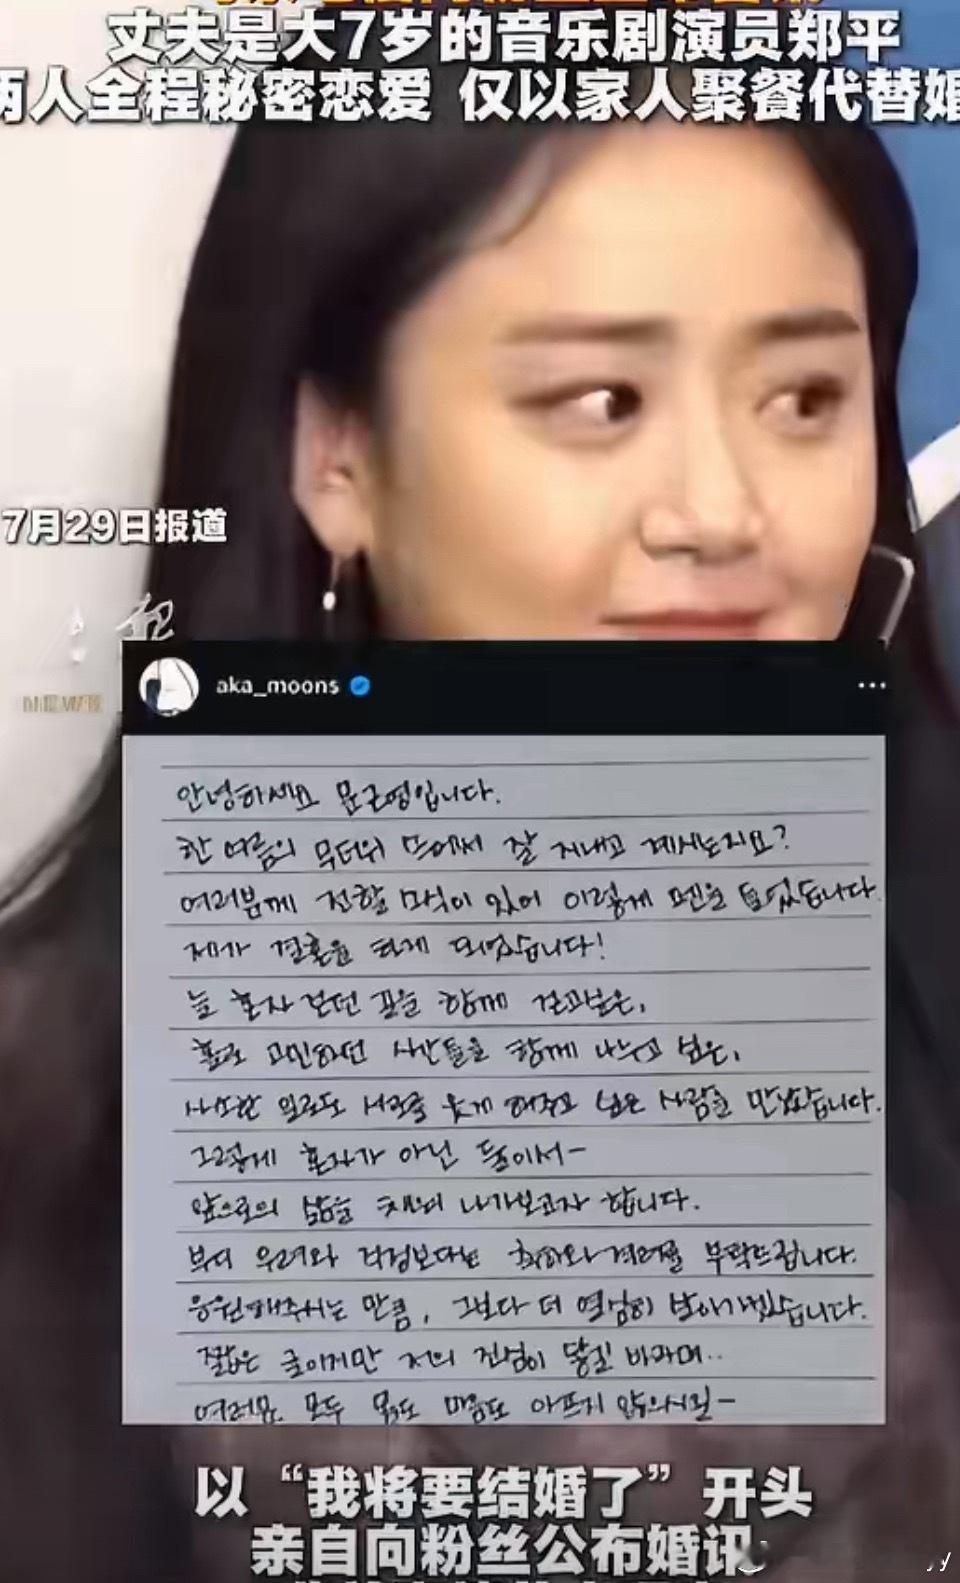 丈夫是大7岁的音乐剧演员郑平
两人全程秘密恋爱 仅以家人聚餐代替婚
7月29日报道
aka_moons
안녕하세요 문근영입니다.
한 여름의 무더위 속에서 잘 지내고 계시는지요?
여러분께 전할 소식이 있어 이렇게 펜을 들었습니다.
제가 결혼을 하게 되었습니다!
늘 혼자 걷던 길을 함께 걷고싶은,
홀로 고민하던 시간들을 함께 나누고 싶은,
사소한 일로도 서로를 웃게 해주고 싶은 사람을 만났습니다.
그렇게 혼자가 아닌 둘이서-
앞으로의 삶을 채워 나가보고자 합니다.
부디 우려와 걱정보다는 축하와 격려를 부탁드립니다.
응원해주시는 만큼, 그보다 더 열심히 살아가겠습니다.
짧은 글이지만 저의 진심이 닿길 바라며..
여러분 모두 몸도 마음도 아프지 않으시길-
以“我将要结婚了”开头
亲自向粉丝公布婚讯